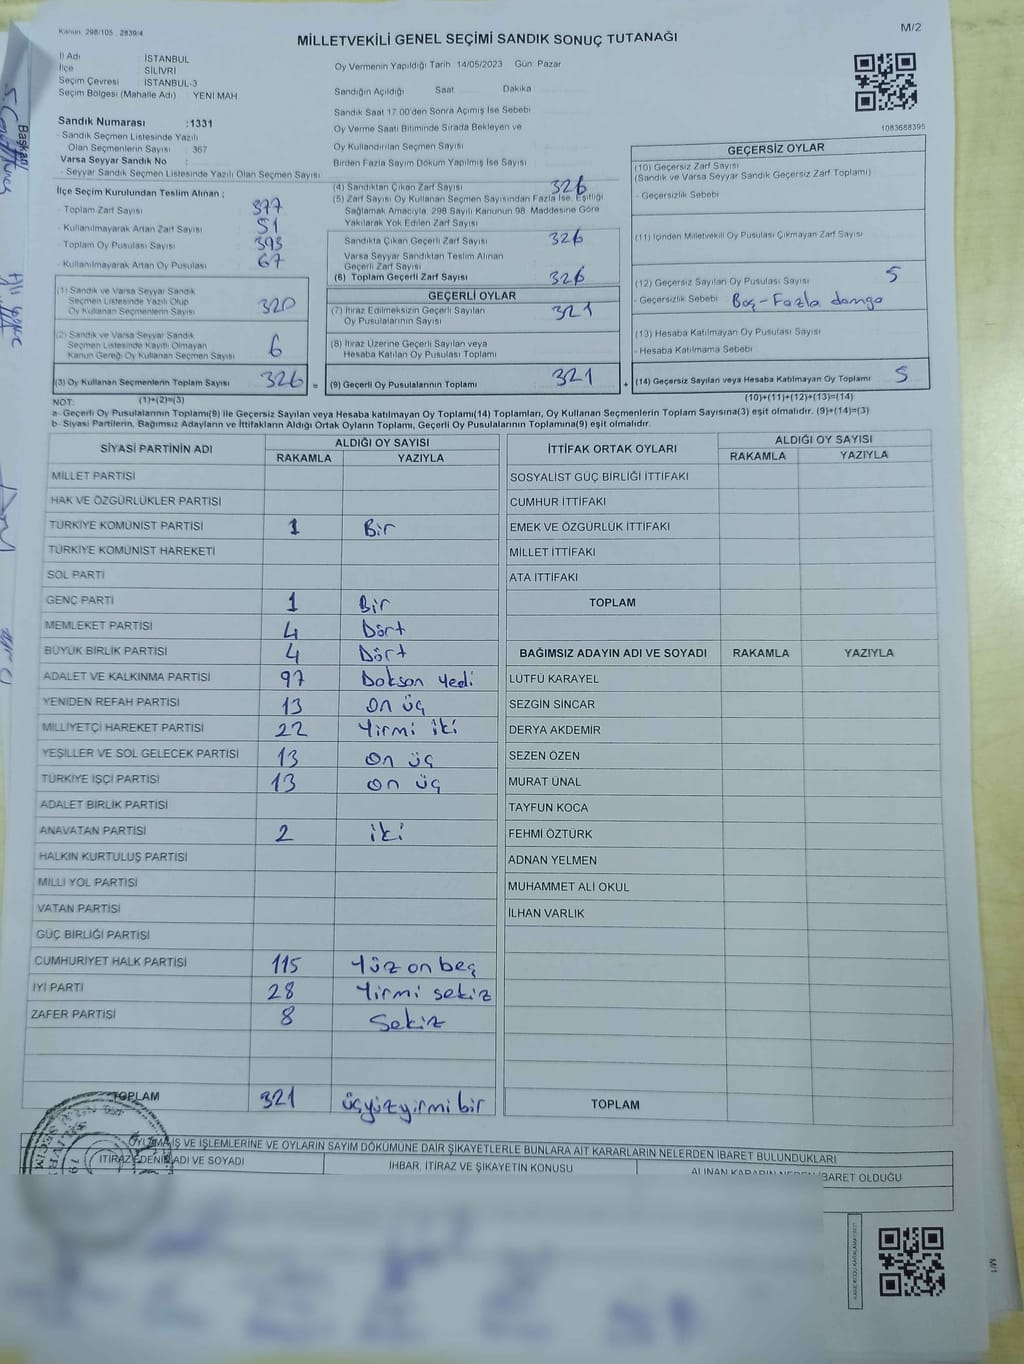 Kanun: 298/105 , 2839/4
M/2
MİLLETVEKİLİ GENEL SEÇİMİ SANDIK SONUÇ TUTANAĞI
İl Adı İSTANBUL
İlçe SİLİVRİ
Seçim Çevresi İSTANBUL-3
Seçim Bölgesi (Mahalle Adı) YENİ MAH
Oy Vermenin Yapıldığı Tarih 14/05/2023 Gün Pazar
Sandığın Açıldığı Saat Dakika
Sandık Saat 17 00'den Sonra Açımış İse Sebebi
Oy Verme Saati Bitiminde Sırada Bekleyen ve
Oy Kullandırılan Seçmen Sayısı
Birden Fazla Sayım Döküm Yapılmış İse Sayısı
1083688395
Sandık Numarası :1331
- Sandık Seçmen Listesinde Yazılı
Olan Seçmenlerin Sayısı 367
Varsa Seyyar Sandık No :
- Seyyar Sandık Seçmen Listesinde Yazılı Olan Seçmen Sayısı
İlçe Seçim Kurulundan Teslim Alınan ;
- Toplam Zarf Sayısı 377
- Kullanılmayarak Artan Zarf Sayısı 51
- Toplam Oy Pusulası Sayısı 393
- Kullanılmayarak Artan Oy Pusulası 67
(1) Sandık ve Varsa Seyyar Sandık
Seçmen Listesinde Yazılı Olup
Oy Kullanan Seçmenlerin Sayısı 320
(2) Sandık ve Varsa Seyyar Sandık
Seçmen Listesinde Kayıtlı Olmayan
Kanun Gereği Oy Kullanan Seçmen Sayısı 6
(3) Oy Kullanan Seçmenlerin Toplam Sayısı 326 =
(4) Sandıktan Çıkan Zarf Sayısı 326
(5) Zarf Sayısı Oy Kullanan Seçmen Sayısından Fazla İse, Eşitliği
Sağlamak Amacıyla, 298 Sayılı Kanunun 98. Maddesine Göre
Yakılarak Yok Edilen Zarf Sayısı
Sandıkta Çıkan Geçerli Zarf Sayısı 326
Varsa Seyyar Sandıktan Teslim Alınan
Geçerli Zarf Sayısı
(6) Toplam Geçerli Zarf Sayısı 326
GEÇERLİ OYLAR
(7) İtiraz Edilmeksizin Geçerli Sayılan
Oy Pusulalarının Sayısı 321
(8) İtiraz Üzerine Geçerli Sayılan veya
Hesaba Katılan Oy Pusulası Toplamı
(9) Geçerli Oy Pusulalarının Toplamı 321 +
GEÇERSİZ OYLAR
(10) Geçersiz Zarf Sayısı
(Sandık ve Varsa Seyyar Sandık Geçersiz Zarf Toplamı)
- Geçersizlik Sebebi
(11) İçinden Milletvekili Oy Pusulası Çıkmayan Zarf Sayısı
(12) Geçersiz Sayılan Oy Pusulası Sayısı 5
- Geçersizlik Sebebi Boş-Fazla damga
(13) Hesaba Katılmayan Oy Pusulası Sayısı
- Hesaba Katılmama Sebebi
(14) Geçersiz Sayılan veya Hesaba Katılmayan Oy Toplamı 5
NOT: (1)+(2)=(3) (10)+(11)+(12)+(13)=(14)
a- Geçerli Oy Pusulalarının Toplamı(9) ile Geçersiz Sayılan veya Hesaba katılmayan Oy Toplamı(14) Toplamları, Oy Kullanan Seçmenlerin Toplam Sayısına(3) eşit olmalıdır. (9)+(14)=(3)
b- Siyasi Partilerin, Bağımsız Adayların ve İttifakların Aldığı Ortak Oyların Toplamı, Geçerli Oy Pusulalarının Toplamına(9) eşit olmalıdır.
SİYASİ PARTİNİN ADI ALDIĞI OY SAYISI
RAKAMLA YAZIYLA
MİLLET PARTİSİ
HAK VE ÖZGÜRLÜKLER PARTİSİ
TÜRKİYE KOMÜNİST PARTİSİ 1 Bir
TÜRKİYE KOMÜNİST HAREKETİ
SOL PARTİ
GENÇ PARTİ 1 Bir
MEMLEKET PARTİSİ 4 Dört
BÜYÜK BİRLİK PARTİSİ 4 Dört
ADALET VE KALKINMA PARTİSİ 97 Doksan Yedi
YENİDEN REFAH PARTİSİ 13 On üç
MİLLİYETÇİ HAREKET PARTİSİ 22 Yirmi iki
YEŞİLLER VE SOL GELECEK PARTİSİ 13 On üç
TÜRKİYE İŞÇİ PARTİSİ 13 On üç
ADALET BİRLİK PARTİSİ
ANAVATAN PARTİSİ 2 iki
HALKIN KURTULUŞ PARTİSİ
MİLLİ YOL PARTİSİ
VATAN PARTİSİ
GÜÇ BİRLİĞİ PARTİSİ
CUMHURİYET HALK PARTİSİ 115 Yüz on beş
İYİ PARTİ 28 Yirmi sekiz
ZAFER PARTİSİ 8 Sekiz
TOPLAM 321 üçyüzyirmi bir
İTTİFAK ORTAK OYLARI ALDIĞI OY SAYISI
RAKAMLA YAZIYLA
SOSYALİST GÜÇ BİRLİĞİ İTTİFAKI
CUMHUR İTTİFAKI
EMEK VE ÖZGÜRLÜK İTTİFAKI
MİLLET İTTİFAKI
ATA İTTİFAKI
TOPLAM
BAĞIMSIZ ADAYIN ADI VE SOYADI RAKAMLA YAZIYLA
LÜTFÜ KARAYEL
SEZGİN SİNCAR
DERYA AKDEMİR
SEZEN ÖZEN
MURAT ÜNAL
TAYFUN KOCA
FEHMİ ÖZTÜRK
ADNAN YELMEN
MUHAMMET ALİ OKUL
İLHAN VARLIK
TOPLAM
OYLAMA İŞ VE İŞLEMLERİNE VE OYLARIN SAYIM DÖKÜMÜNE DAİR ŞİKAYETLERLE BUNLARA AİT KARARLARIN NELERDEN İBARET BULUNDUKLARI
İTİRAZ EDENİN ADI VE SOYADI
İHBAR, İTİRAZ VE ŞİKAYETİN KONUSU
ALINAN KARARIN NEDEN İBARET OLDUĞU
M/1
Başkan